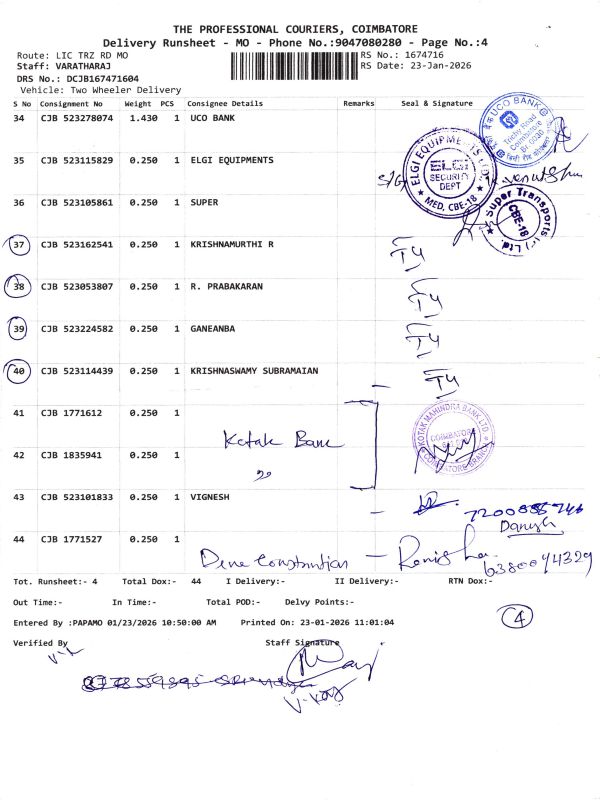 THE PROFESSIONAL COURIERS, COIMBATORE
Delivery Runsheet - MO - Phone No.:9047080280 - Page No.:4
Route: LIC TRZ RD MO
RS No.: 1674716
Staff: VARATHARAJ
RS Date: 23-Jan-2026
DRS No.: DCJB167471604
Vehicle: Two Wheeler Delivery
S No Consignment No Weight PCS Consignee Details Remarks Seal & Signature
34 CJB 523278074 1.430 1 UCO BANK
UCO BANK
Trichy Road
Coimbatore
35 CJB 523115829 0.250 1 ELGI EQUIPMENTS
ELGI EQUIPMENTS LTD.
ELGI
SECURITY
DEPT
MED, CBE-18
36 CJB 523105861 0.250 1 SUPER
Super Transports (P) Ltd.
CBE-18
37 CJB 523162541 0.250 1 KRISHNAMURTHI R
T4
38 CJB 523053807 0.250 1 R. PRABAKARAN
T4
39 CJB 523224582 0.250 1 GANEANBA
T4
40 CJB 523114439 0.250 1 KRISHNASWAMY SUBRAMAIAN
T4
41 CJB 1771612 0.250 1
Kotak Bank
KOTAK MAHINDRA BANK LTD.
COIMBATORE
COIMBATORE BRANCH
42 CJB 1835941 0.250 1
43 CJB 523101833 0.250 1 VIGNESH
Danush
44 CJB 1771527 0.250 1
6380094329
Tot. Runsheet:- 4 Total Dox:- 44 I Delivery:- II Delivery:- RTN Dox:-
Out Time:- In Time:- Total POD:- Delvy Points:-
4
Entered By :PAPAMO 01/23/2026 10:50:00 AM Printed On: 23-01-2026 11:01:04
Verified By Staff Signature